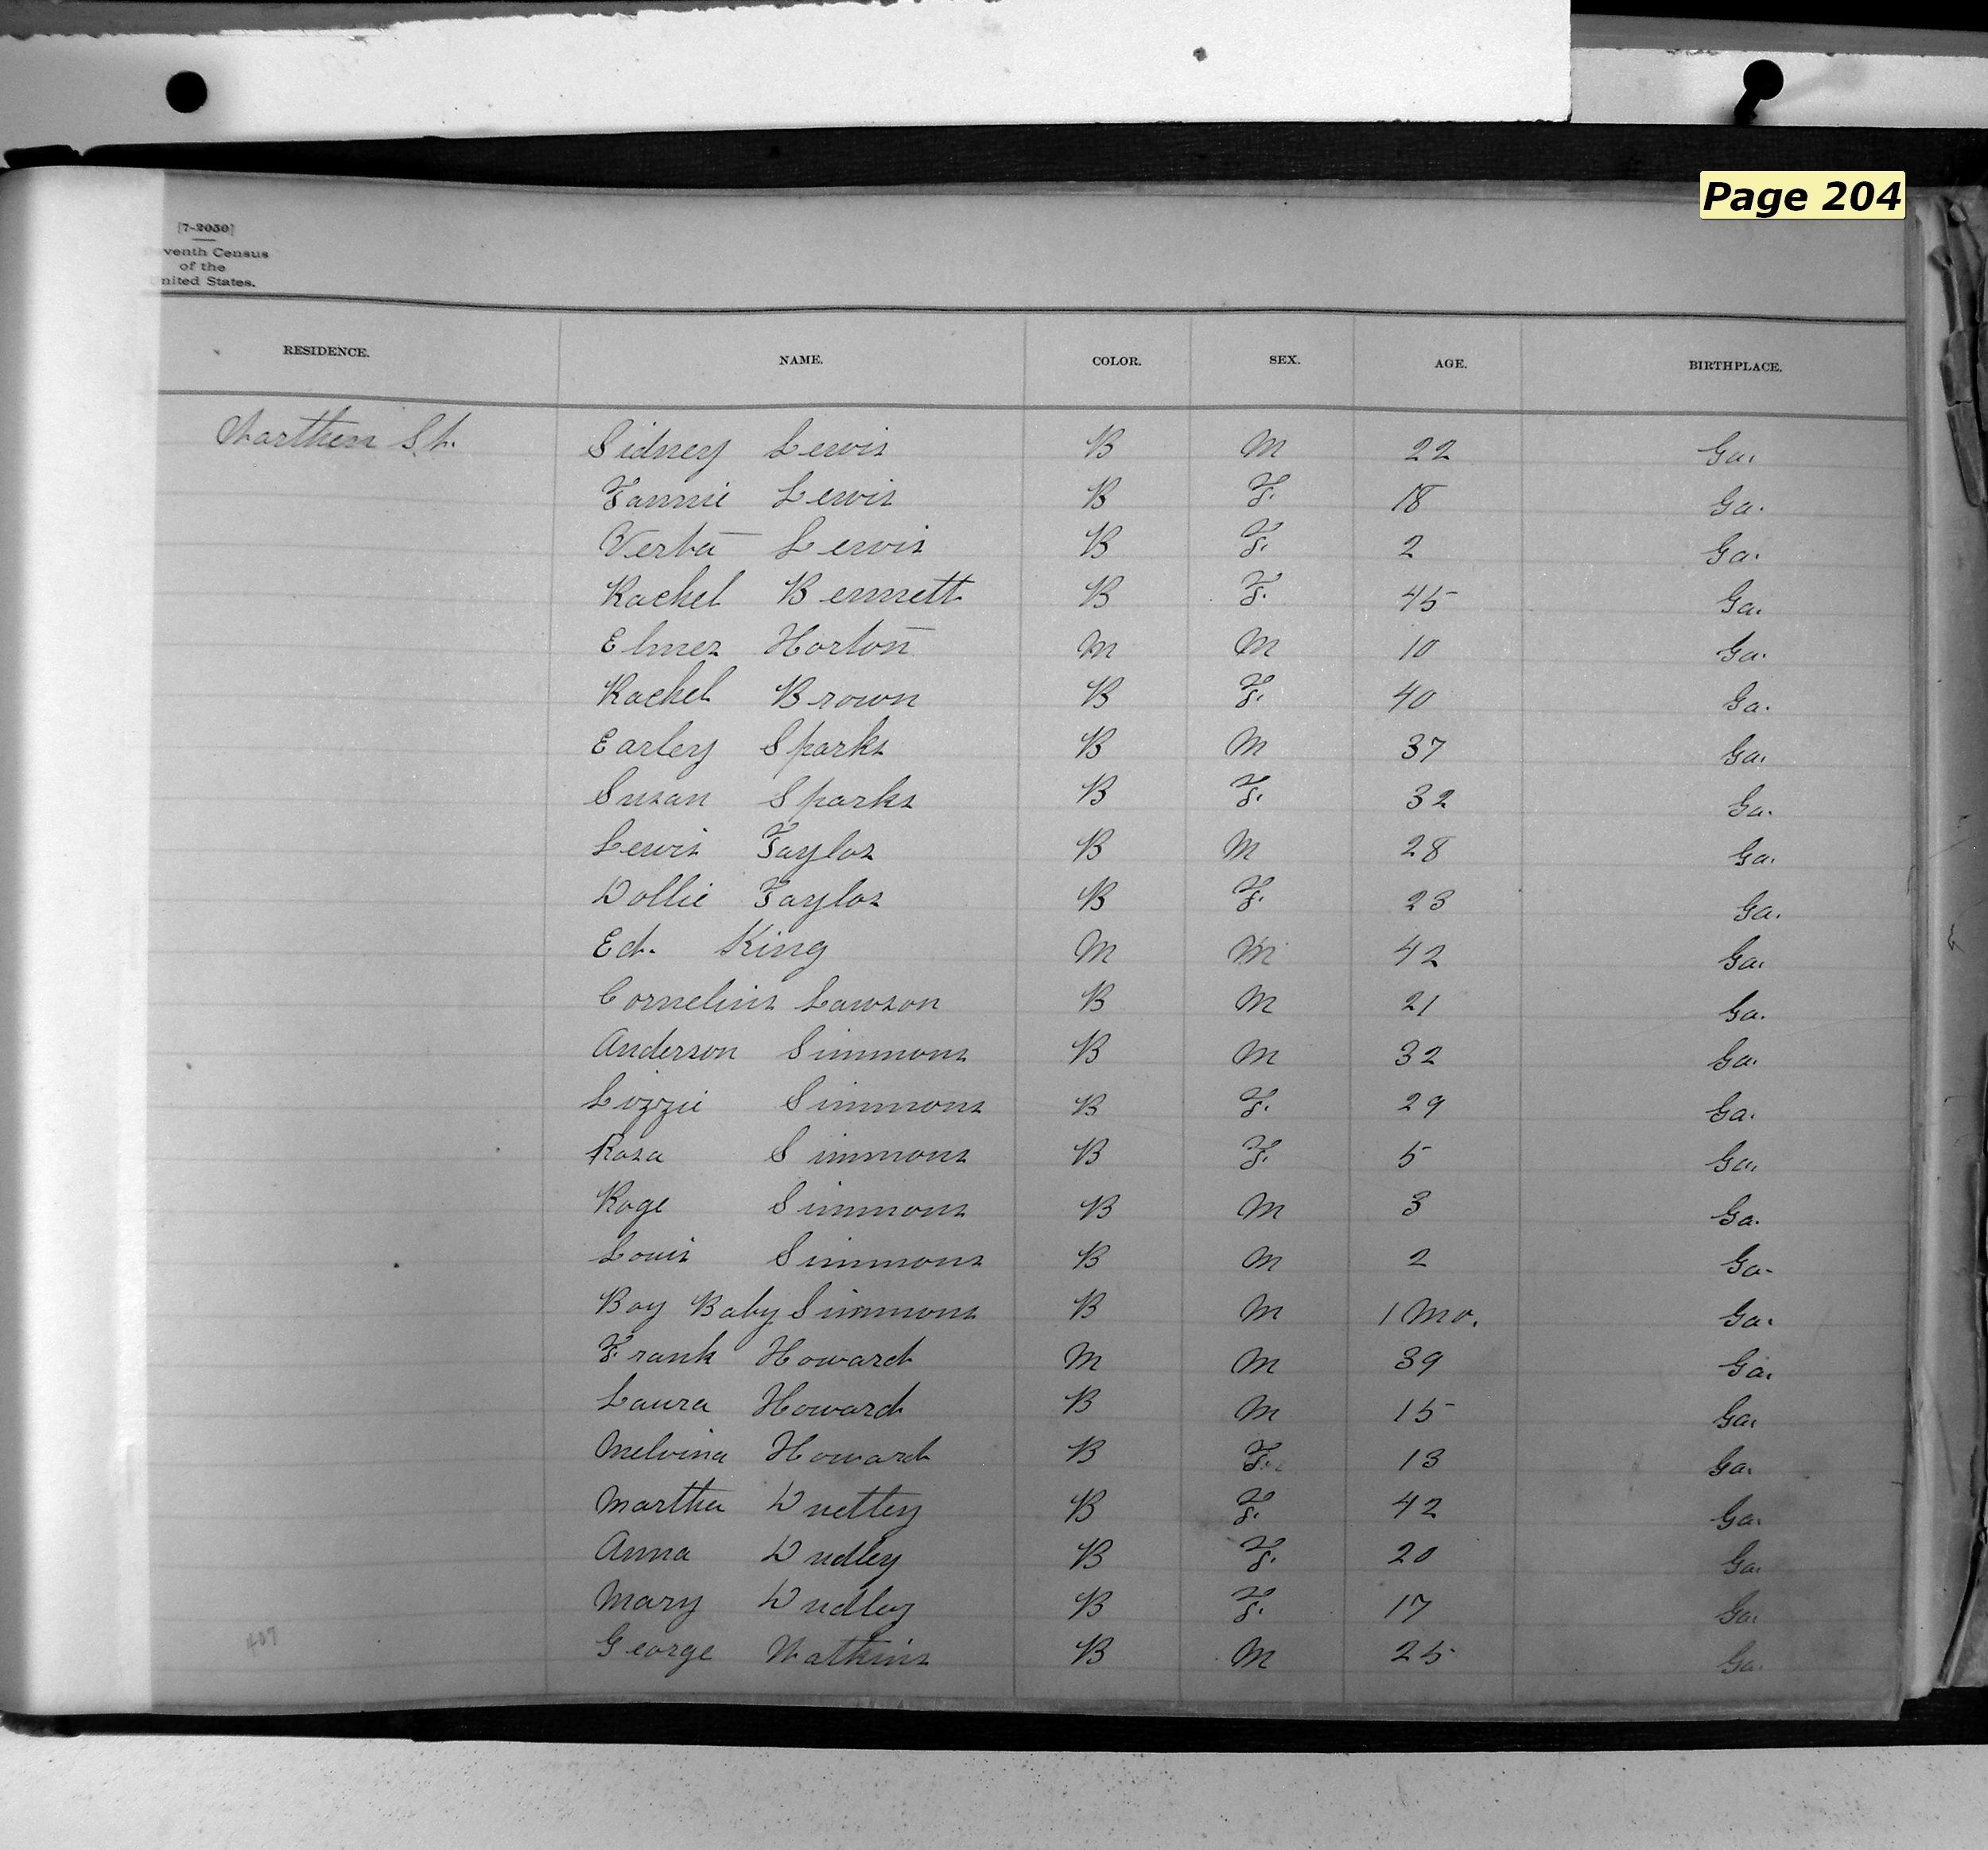 Page 204
[7-2050]
venth Census
of the
nited States.
RESIDENCE. NAME. COLOR. SEX. AGE. BIRTHPLACE.
Warthen St. Sidney Lewis B M 22 Ga.
Fannie Lewis B F. 18 Ga.
Verta Lewis B F. 2 Ga.
Rachel Bennett B F. 45 Ga.
Elmer Horton M M 10 Ga.
Rachel Brown B F. 40 Ga.
Earley Sparks B M 37 Ga.
Susan Sparks B F. 32 Ga.
Lewis Taylor B M 28 Ga.
Dollie Taylor B F. 23 Ga.
Ed. King M M 42 Ga.
Cornelius Lawson B M 21 Ga.
Anderson Simmons B M 32 Ga.
Lizzie Simmons B F. 29 Ga.
Rosa Simmons B F. 5 Ga.
Roge Simmons B M 3 Ga.
Louis Simmons B M 2 Ga.
Boy Baby Simmons B M 1 Mo. Ga.
Frank Howard M M 39 Ga.
Laura Howard B M 15 Ga.
Melvina Howard B F. 13 Ga.
Martha Duettey B F. 42 Ga.
Anna Dudley B F. 20 Ga.
Mary Dudley B F. 17 Ga.
George Watkins B M 25 Ga.